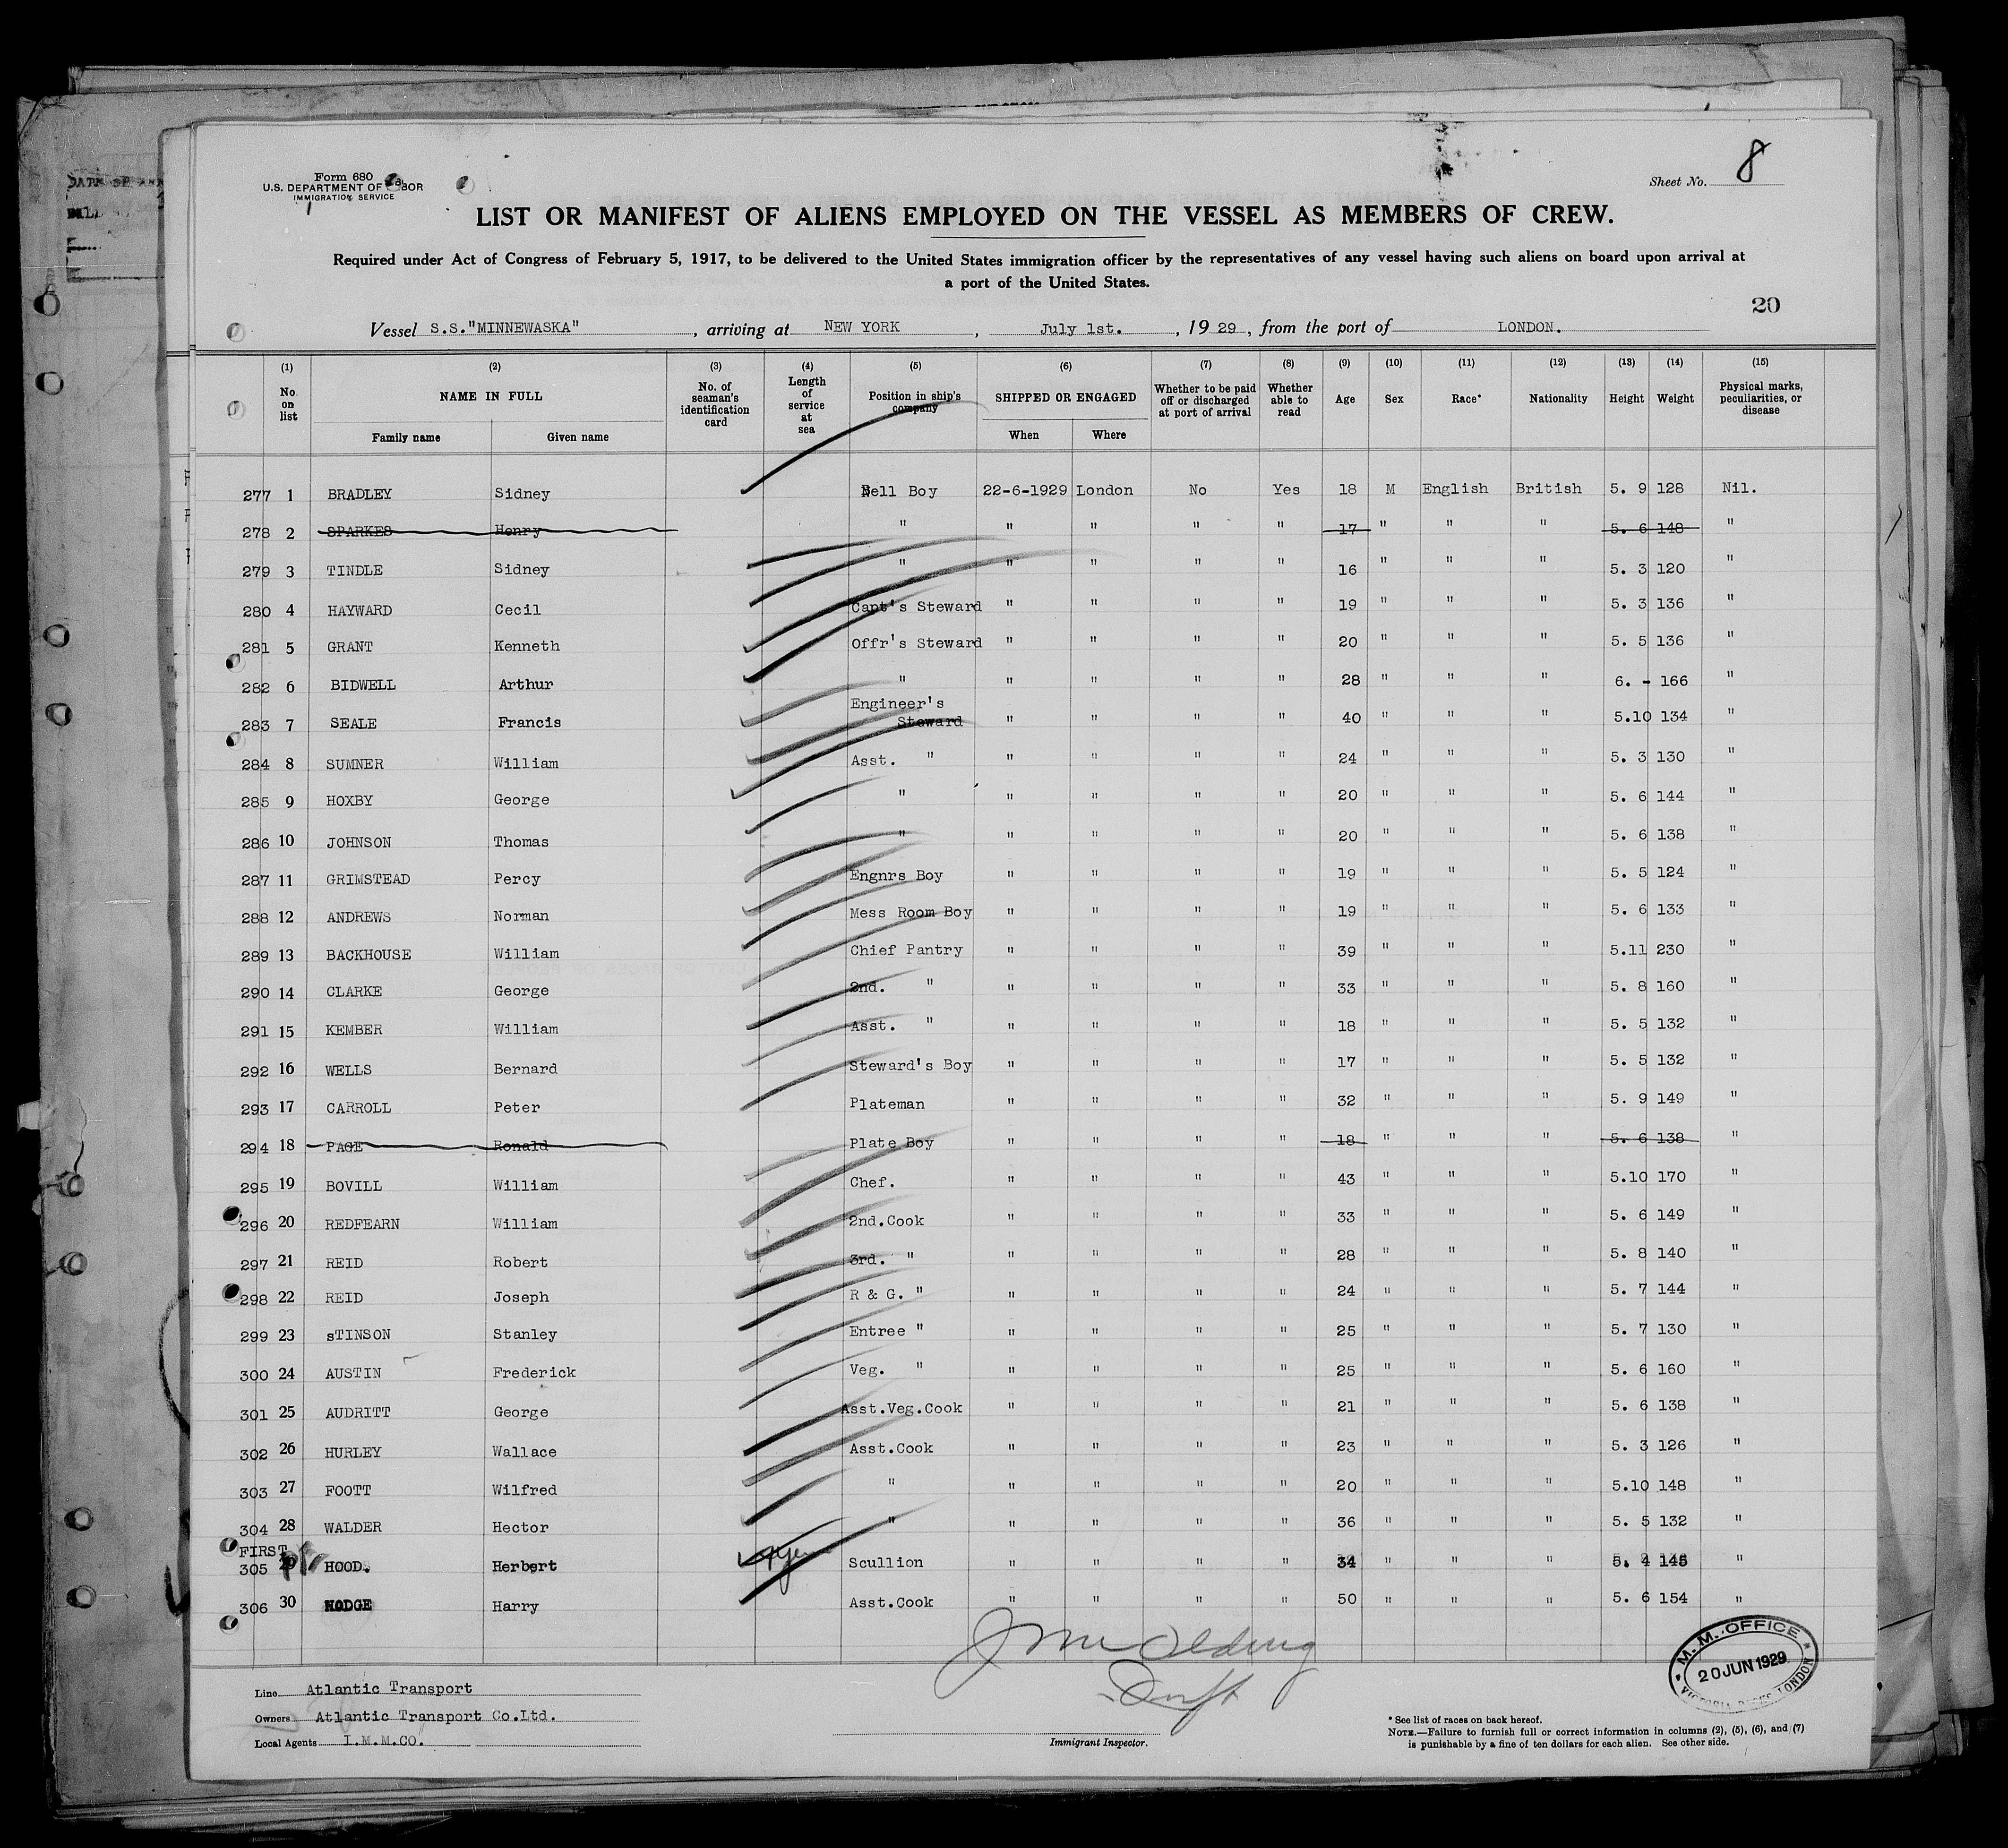 Form 680
U.S. DEPARTMENT OF LABOR
IMMIGRATION SERVICE
Sheet No. 8
LIST OR MANIFEST OF ALIENS EMPLOYED ON THE VESSEL AS MEMBERS OF CREW.
Required under Act of Congress of February 5, 1917, to be delivered to the United States immigration officer by the representatives of any vessel having such aliens on board upon arrival at
a port of the United States.
20
Vessel S.S."MINNEWASKA", arriving at NEW YORK, July 1st., 1929, from the port of LONDON.
(1) (2) (3) (4) (5) (6) (7) (8) (9) (10) (11) (12) (13) (14) (15)
No. on list NAME IN FULL No. of seaman's identification card Length of service at sea Position in ship's company SHIPPED OR ENGAGED Whether to be paid off or discharged at port of arrival Whether able to read Age Sex Race* Nationality Height Weight Physical marks, peculiarities, or disease
Family name Given name When Where
277 1 BRADLEY Sidney Bell Boy 22-6-1929 London No Yes 18 M English British 5. 9 128 Nil.
278 2 SPARKES Henry " " " " " 17 " " " 5. 6 148 "
279 3 TINDLE Sidney " " " " " 16 " " " 5. 3 120 "
280 4 HAYWARD Cecil Capt's Steward " " " " 19 " " " 5. 3 136 "
281 5 GRANT Kenneth Offr's Steward " " " " 20 " " " 5. 5 136 "
282 6 BIDWELL Arthur " " " " " 28 " " " 6. - 166 "
283 7 SEALE Francis Engineer's Steward " " " " 40 " " " 5.10 134 "
284 8 SUMNER William Asst. " " " " " 24 " " " 5. 3 130 "
285 9 HOXBY George " " " " " 20 " " " 5. 6 144 "
286 10 JOHNSON Thomas " " " " " 20 " " " 5. 6 138 "
287 11 GRIMSTEAD Percy Engnrs Boy " " " " 19 " " " 5. 5 124 "
288 12 ANDREWS Norman Mess Room Boy " " " " 19 " " " 5. 6 133 "
289 13 BACKHOUSE William Chief Pantry " " " " 39 " " " 5.11 230 "
290 14 CLARKE George 2nd. " " " " " 33 " " " 5. 8 160 "
291 15 KEMBER William Asst. " " " " " 18 " " " 5. 5 132 "
292 16 WELLS Bernard Steward's Boy " " " " 17 " " " 5. 5 132 "
293 17 CARROLL Peter Plateman " " " " 32 " " " 5. 9 149 "
294 18 PAGE Ronald Plate Boy " " " " 18 " " " 5. 6 138 "
295 19 BOVILL William Chef. " " " " 43 " " " 5.10 170 "
296 20 REDFEARN William 2nd.Cook " " " " 33 " " " 5. 6 149 "
297 21 REID Robert 3rd. " " " " " 28 " " " 5. 8 140 "
298 22 REID Joseph R & G. " " " " " 24 " " " 5. 7 144 "
299 23 sTINSON Stanley Entree " " " " " 25 " " " 5. 7 130 "
300 24 AUSTIN Frederick Veg. " " " " " 25 " " " 5. 6 160 "
301 25 AUDRITT George Asst.Veg.Cook " " " " 21 " " " 5. 6 138 "
302 26 HURLEY Wallace Asst.Cook " " " " 23 " " " 5. 3 126 "
303 27 FOOTT Wilfred " " " " " 20 " " " 5.10 148 "
304 28 WALDER Hector " " " " " 36 " " " 5. 5 132 "
FIRST
305 29 HOOD. Herbert Scullion " " " " 34 " " " 5. 4 145 "
306 30 HODGE Harry Asst.Cook " " " " 50 " " " 5. 6 154 "
M.M. OFFICE
20 JUN 1929
VICTORIA DOCKS LONDON
Line Atlantic Transport
Owners Atlantic Transport Co.Ltd.
Local Agents I.M.M.CO.
Immigrant Inspector.
* See list of races on back hereof.
NOTE.—Failure to furnish full or correct information in columns (2), (5), (6), and (7)
is punishable by a fine of ten dollars for each alien. See other side.